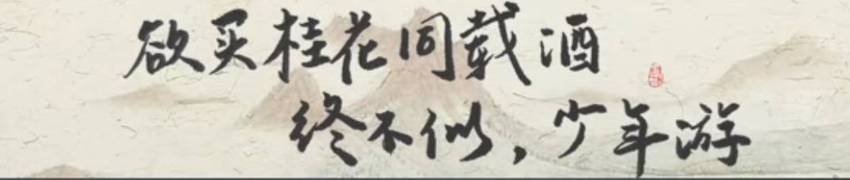 欲买桂花同载酒
终不似，少年游